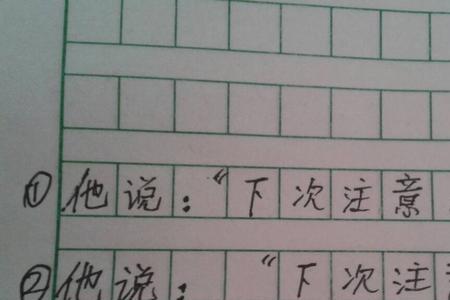 ①他说：“下次注意
②他说：“下次注